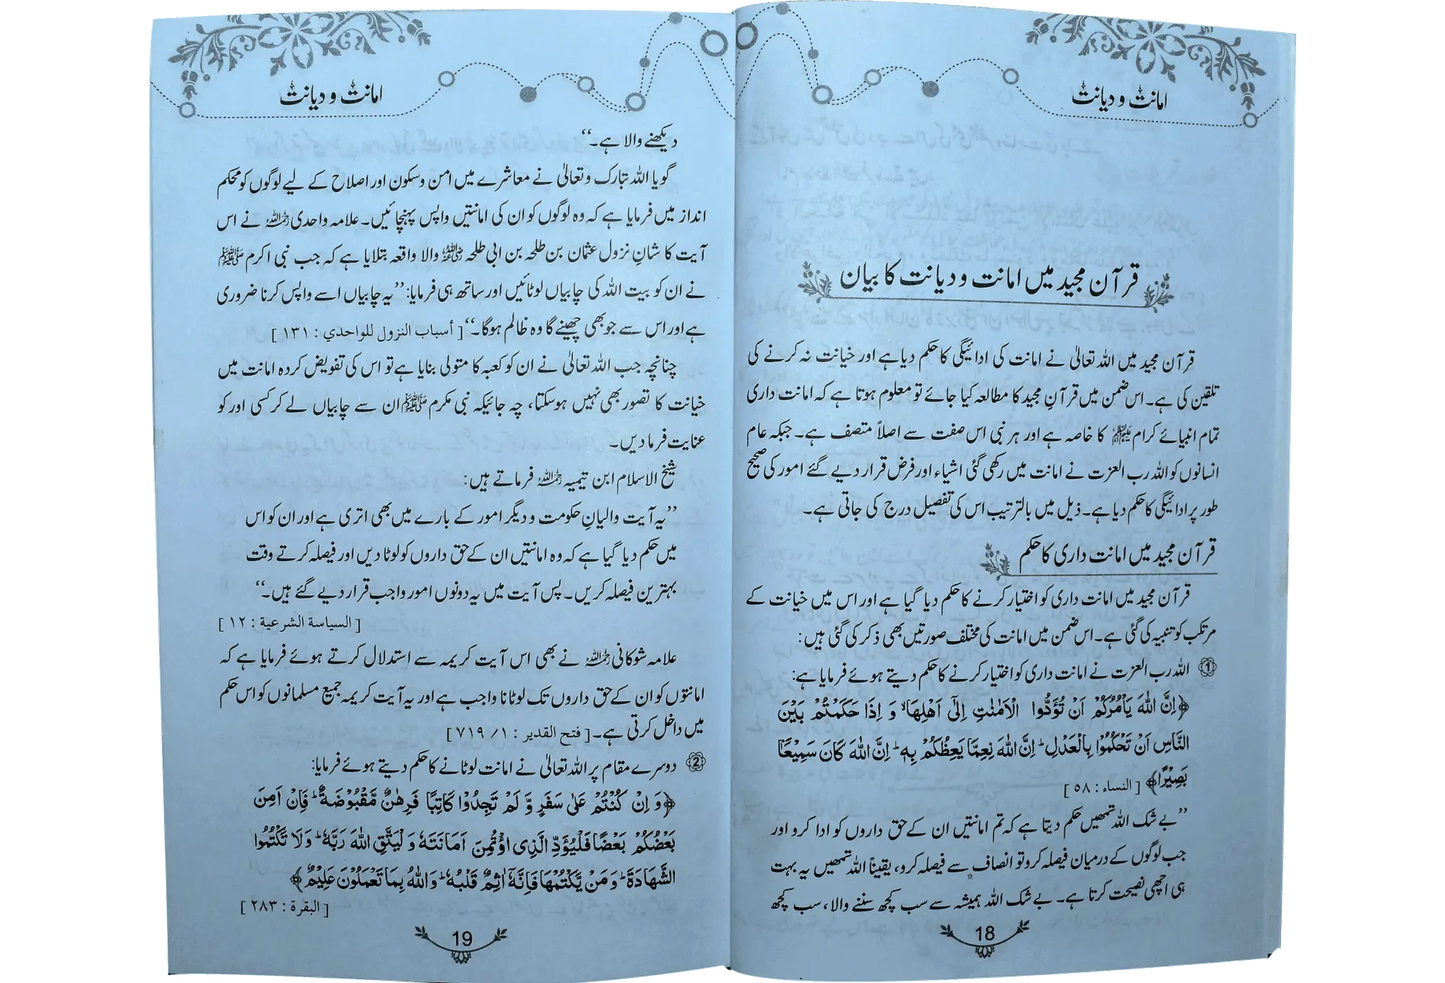 امانت و دیانت
قرآن مجید میں امانت و دیانت کا بیان
قرآن مجید میں اللہ تعالیٰ نے امانت کی ادائیگی کا حکم دیا ہے اور خیانت نہ کرنے کی
تلقین کی ہے۔ اس ضمن میں قرآن مجید کا مطالعہ کیا جائے تو معلوم ہوتا ہے کہ امانت داری
تمام انبیائے کرام ﷺ کا خاصہ ہے اور ہر نبی اس صفت سے اصلاً متصف ہے۔ جبکہ عام
انسانوں کو اللہ رب العزت نے امانت میں رکھی گئی اشیاء اور فرض قرار دیے گئے امور کی صحیح
طور پر ادائیگی کا حکم دیا ہے۔ ذیل میں بالترتیب اس کی تفصیل درج کی جاتی ہے۔
قرآن مجید میں امانت داری کا حکم
قرآن مجید میں امانت داری کو اختیار کرنے کا حکم دیا گیا ہے اور اس میں خیانت کے
مرتکب کو تنبیہ کی گئی ہے۔ اس ضمن میں امانت کی مختلف صورتیں بھی ذکر کی گئی ہیں:
① اللہ رب العزت نے امانت داری کو اختیار کرنے کا حکم دیتے ہوئے فرمایا ہے:
﴿اِنَّ اللّٰهَ يَاْمُرُكُمْ اَنْ تُؤَدُّوا الْاَمٰنٰتِ اِلٰۤى اَهْلِهَا ۙ وَ اِذَا حَكَمْتُمْ بَيْنَ
النَّاسِ اَنْ تَحْكُمُوْا بِالْعَدْلِ ؕ اِنَّ اللّٰهَ نِعِمَّا يَعِظُكُمْ بِهٖ ؕ اِنَّ اللّٰهَ كَانَ سَمِيْعًۢا
بَصِيْرًا﴾ [ النساء : ٥٨ ]
’’بے شک اللہ تمھیں حکم دیتا ہے کہ تم امانتیں ان کے حق داروں کو ادا کرو اور
جب لوگوں کے درمیان فیصلہ کرو تو انصاف سے فیصلہ کرو، یقیناً اللہ تمھیں یہ بہت
ہی اچھی نصیحت کرتا ہے۔ بے شک اللہ ہمیشہ سے سب کچھ سننے والا، سب کچھ
18
امانت و دیانت
دیکھنے والا ہے۔‘‘
گویا اللہ تبارک و تعالیٰ نے معاشرے میں امن و سکون اور اصلاح کے لیے لوگوں کو محکم
انداز میں فرمایا ہے کہ وہ لوگوں کو ان کی امانتیں واپس پہنچائیں۔ علامہ واحدی رحمہ اللہ نے اس
آیت کا شانِ نزول عثمان بن طلحہ بن ابی طلحہ رضی اللہ عنہ والا واقعہ بتلایا ہے کہ جب نبی اکرم ﷺ
نے ان کو بیت اللہ کی چابیاں لوٹائیں اور ساتھ ہی فرمایا: ’’یہ چابیاں اسے واپس کرنا ضروری
ہے اور اس سے جو بھی چھینے گا وہ ظالم ہوگا۔‘‘ [ أسباب النزول للواحدي : ١٣١ ]
چنانچہ جب اللہ تعالیٰ نے ان کو کعبہ کا متولی بنایا ہے تو اس کی تفویض کردہ امانت میں
خیانت کا تصور بھی نہیں ہوسکتا، چہ جائیکہ نبی مکرم ﷺ ان سے چابیاں لے کر کسی اور کو
عنایت فرما دیں۔
شیخ الاسلام ابن تیمیہ رحمہ اللہ فرماتے ہیں:
’’یہ آیت والیانِ حکومت و دیگر امور کے بارے میں بھی اتری ہے اور ان کو اس
میں حکم دیا گیا ہے کہ وہ امانتیں ان کے حق داروں کو لوٹا دیں اور فیصلہ کرتے وقت
بہترین فیصلہ کریں۔ پس آیت میں یہ دونوں امور واجب قرار دیے گئے ہیں۔‘‘
[ السياسة الشرعية : ١٢ ]
علامہ شوکانی رحمہ اللہ نے بھی اس آیت کریمہ سے استدلال کرتے ہوئے فرمایا ہے کہ
امانتوں کو ان کے حق داروں تک لوٹانا واجب ہے اور یہ آیت کریمہ جمیع مسلمانوں کو اس حکم
میں داخل کرتی ہے۔ [ فتح القدير : ١/ ٧١٩ ]
② دوسرے مقام پر اللہ تعالیٰ نے امانت لوٹانے کا حکم دیتے ہوئے فرمایا:
﴿وَ اِنْ كُنْتُمْ عَلٰى سَفَرٍ وَّ لَمْ تَجِدُوْا كَاتِبًا فَرِهٰنٌ مَّقْبُوْضَةٌ ؕ فَاِنْ اَمِنَ
بَعْضُكُمْ بَعْضًا فَلْيُؤَدِّ الَّذِى اؤْتُمِنَ اَمَانَتَهٗ وَ لْيَتَّقِ اللّٰهَ رَبَّهٗ ؕ وَ لَا تَكْتُمُوا
الشَّهَادَةَ ؕ وَ مَنْ يَّكْتُمْهَا فَاِنَّهٗۤ اٰثِمٌ قَلْبُهٗ ؕ وَ اللّٰهُ بِمَا تَعْمَلُوْنَ عَلِيْمٌ﴾
[ البقرة : ٢٨٣ ]
19